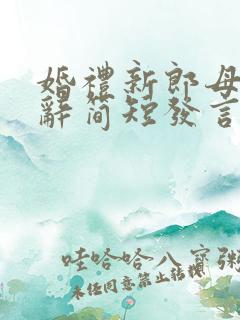 婚禮新郎母
辭簡短發言
哇哈哈八寶粥
未任同意禁止转摸